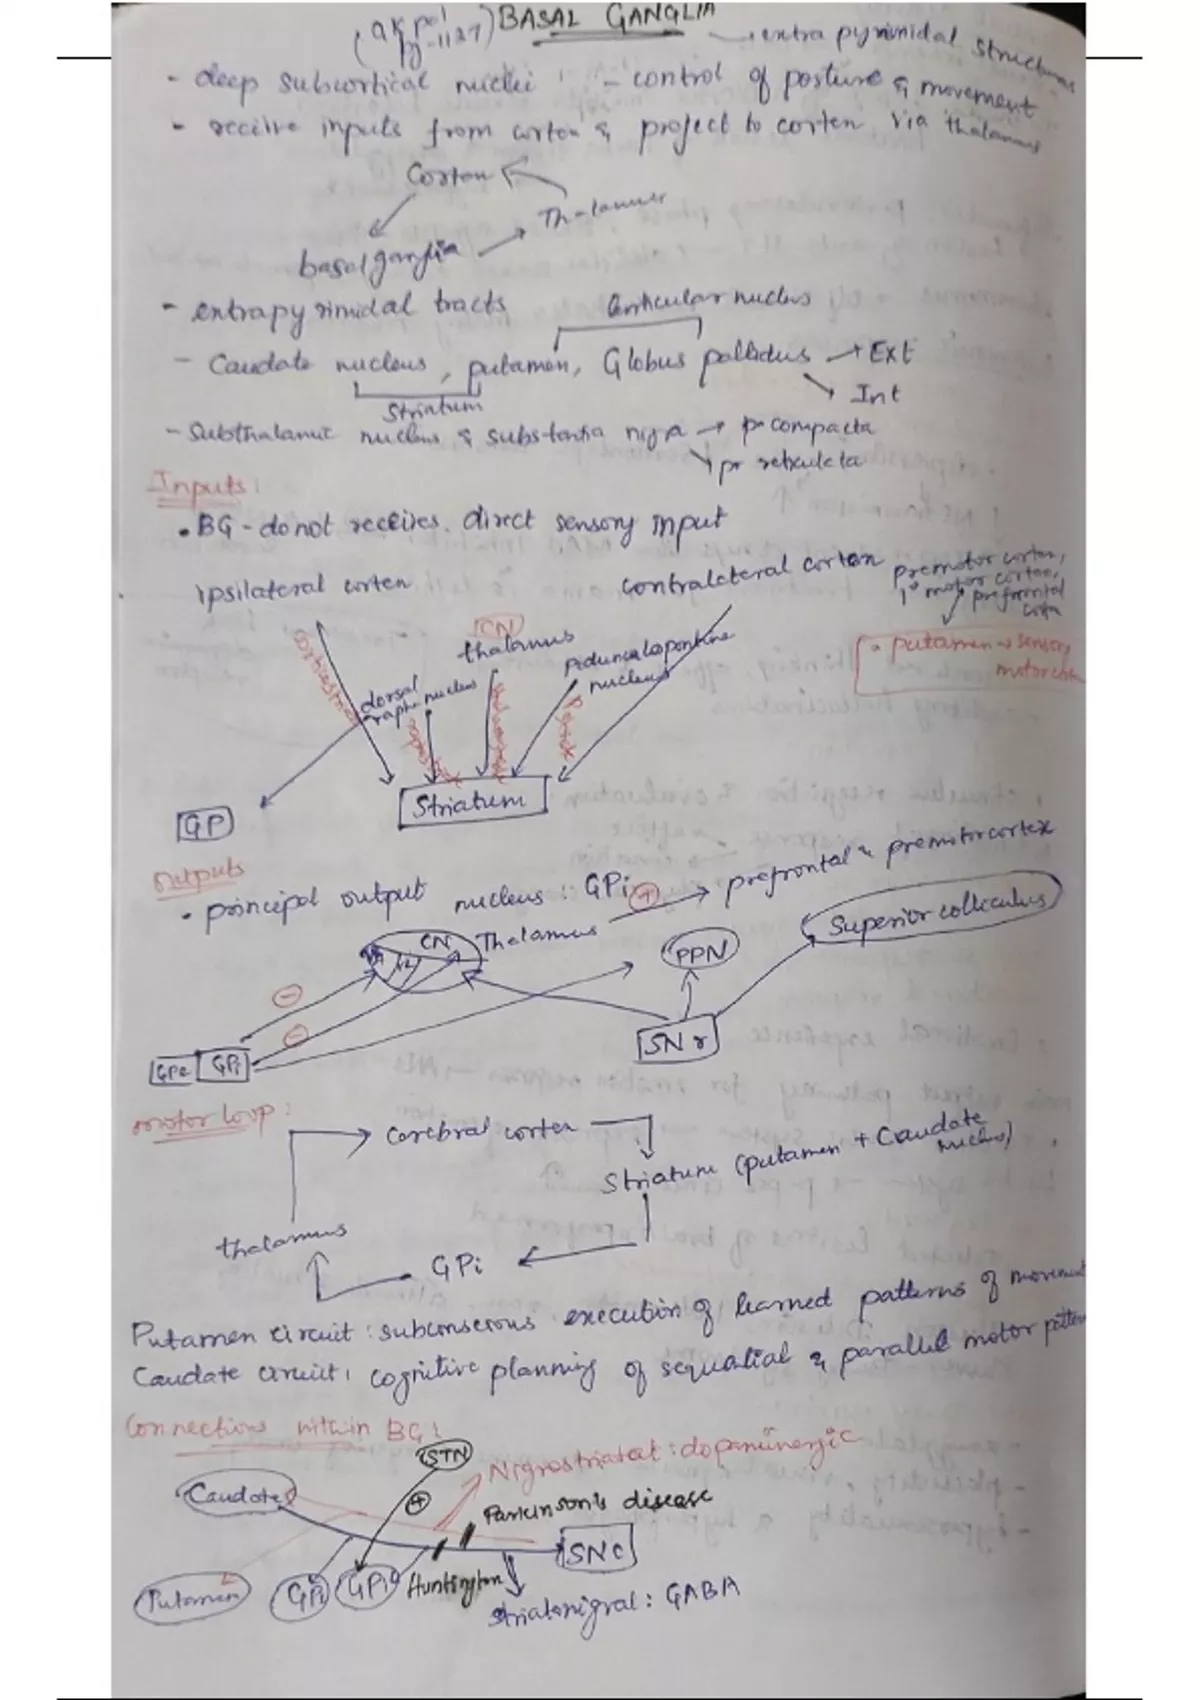 (AK pal pg-1127) BASAL GANGLIA
extra pyrimidal structures
- deep subcortical nuclei - control of posture & movement
- receive inputs from corten & project to corten via thalamus
Corten
Thalamus
basal ganglia
- entrapyrimidal tracts
lenticular nucleus
- Caudate nucleus, putamen, Globus pallidus → Ext
Int
Striatum
- Subthalamic nucleus & substantia nigra → pr compacta
pr reticulata
Inputs:
• BG - do not receives direct sensory input
ipsilateral corten
contralateral corten
premotor corten,
1° motor corten,
prefrontal
(CN)
thalamus
pedunculopontine
nucleus
• putamen → sensory
motor
dorsal
raphe nucleus
GP
Striatum
Outputs
• principal output nucleus: GPi
⊕ → prefrontal & premotor cortex
CN Thalamus
PPN
Superior colliculus
GPe GPi
SNr
motor loop:
Cerebral corten
Striatum (putamen + Caudate
nucleus)
thalamus
GPi
Putamen circuit: subconscious execution of learned patterns of movement
Caudate circuit: cognitive planning of sequatial & parallel motor pattern
Connections within BG:
STN
Nigrostriatal: dopaminergic
Caudate
Parkinson's disease
SNc
Putamen
GPi
GPi
Huntington
Striatonigral: GABA